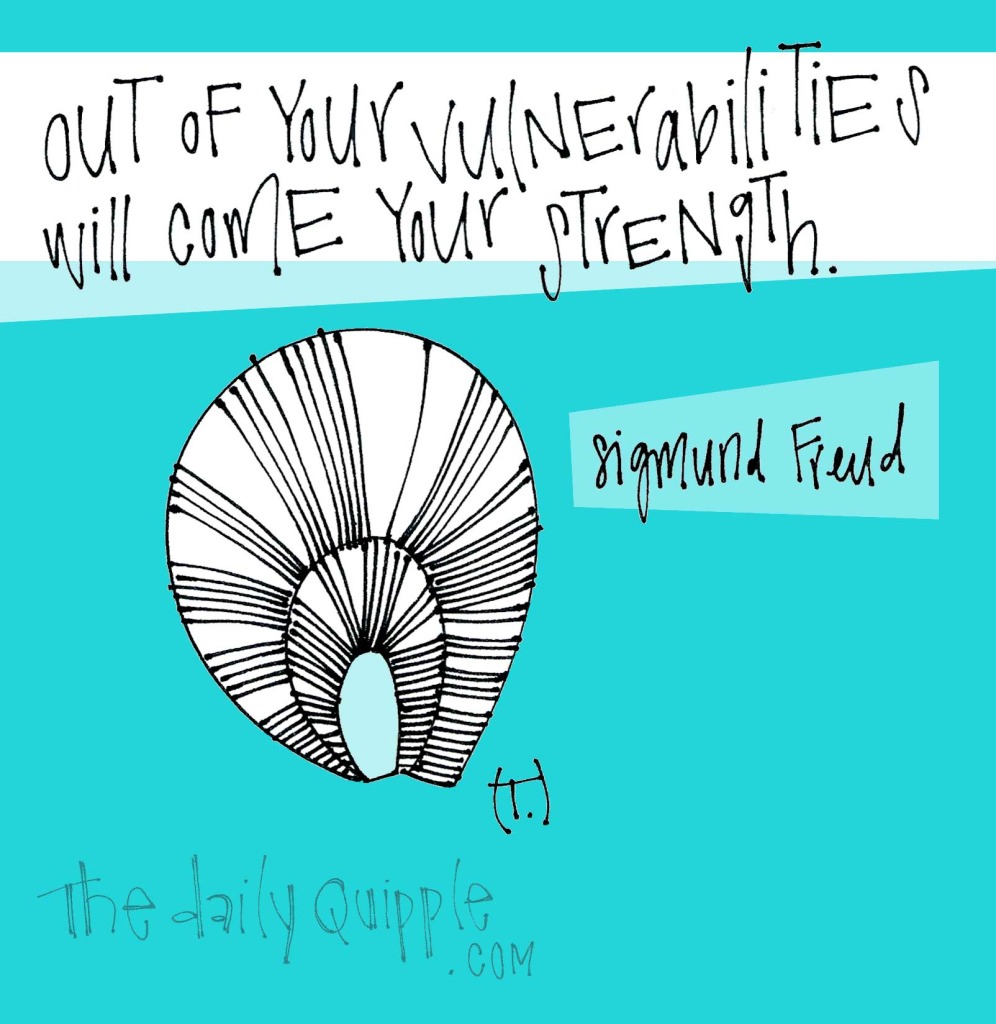 OUT OF YOUR VULNErabiliTiES
will COME YOUR STrENgTh.
sigmund Freud
(T.)
The daily Quipple
.COM